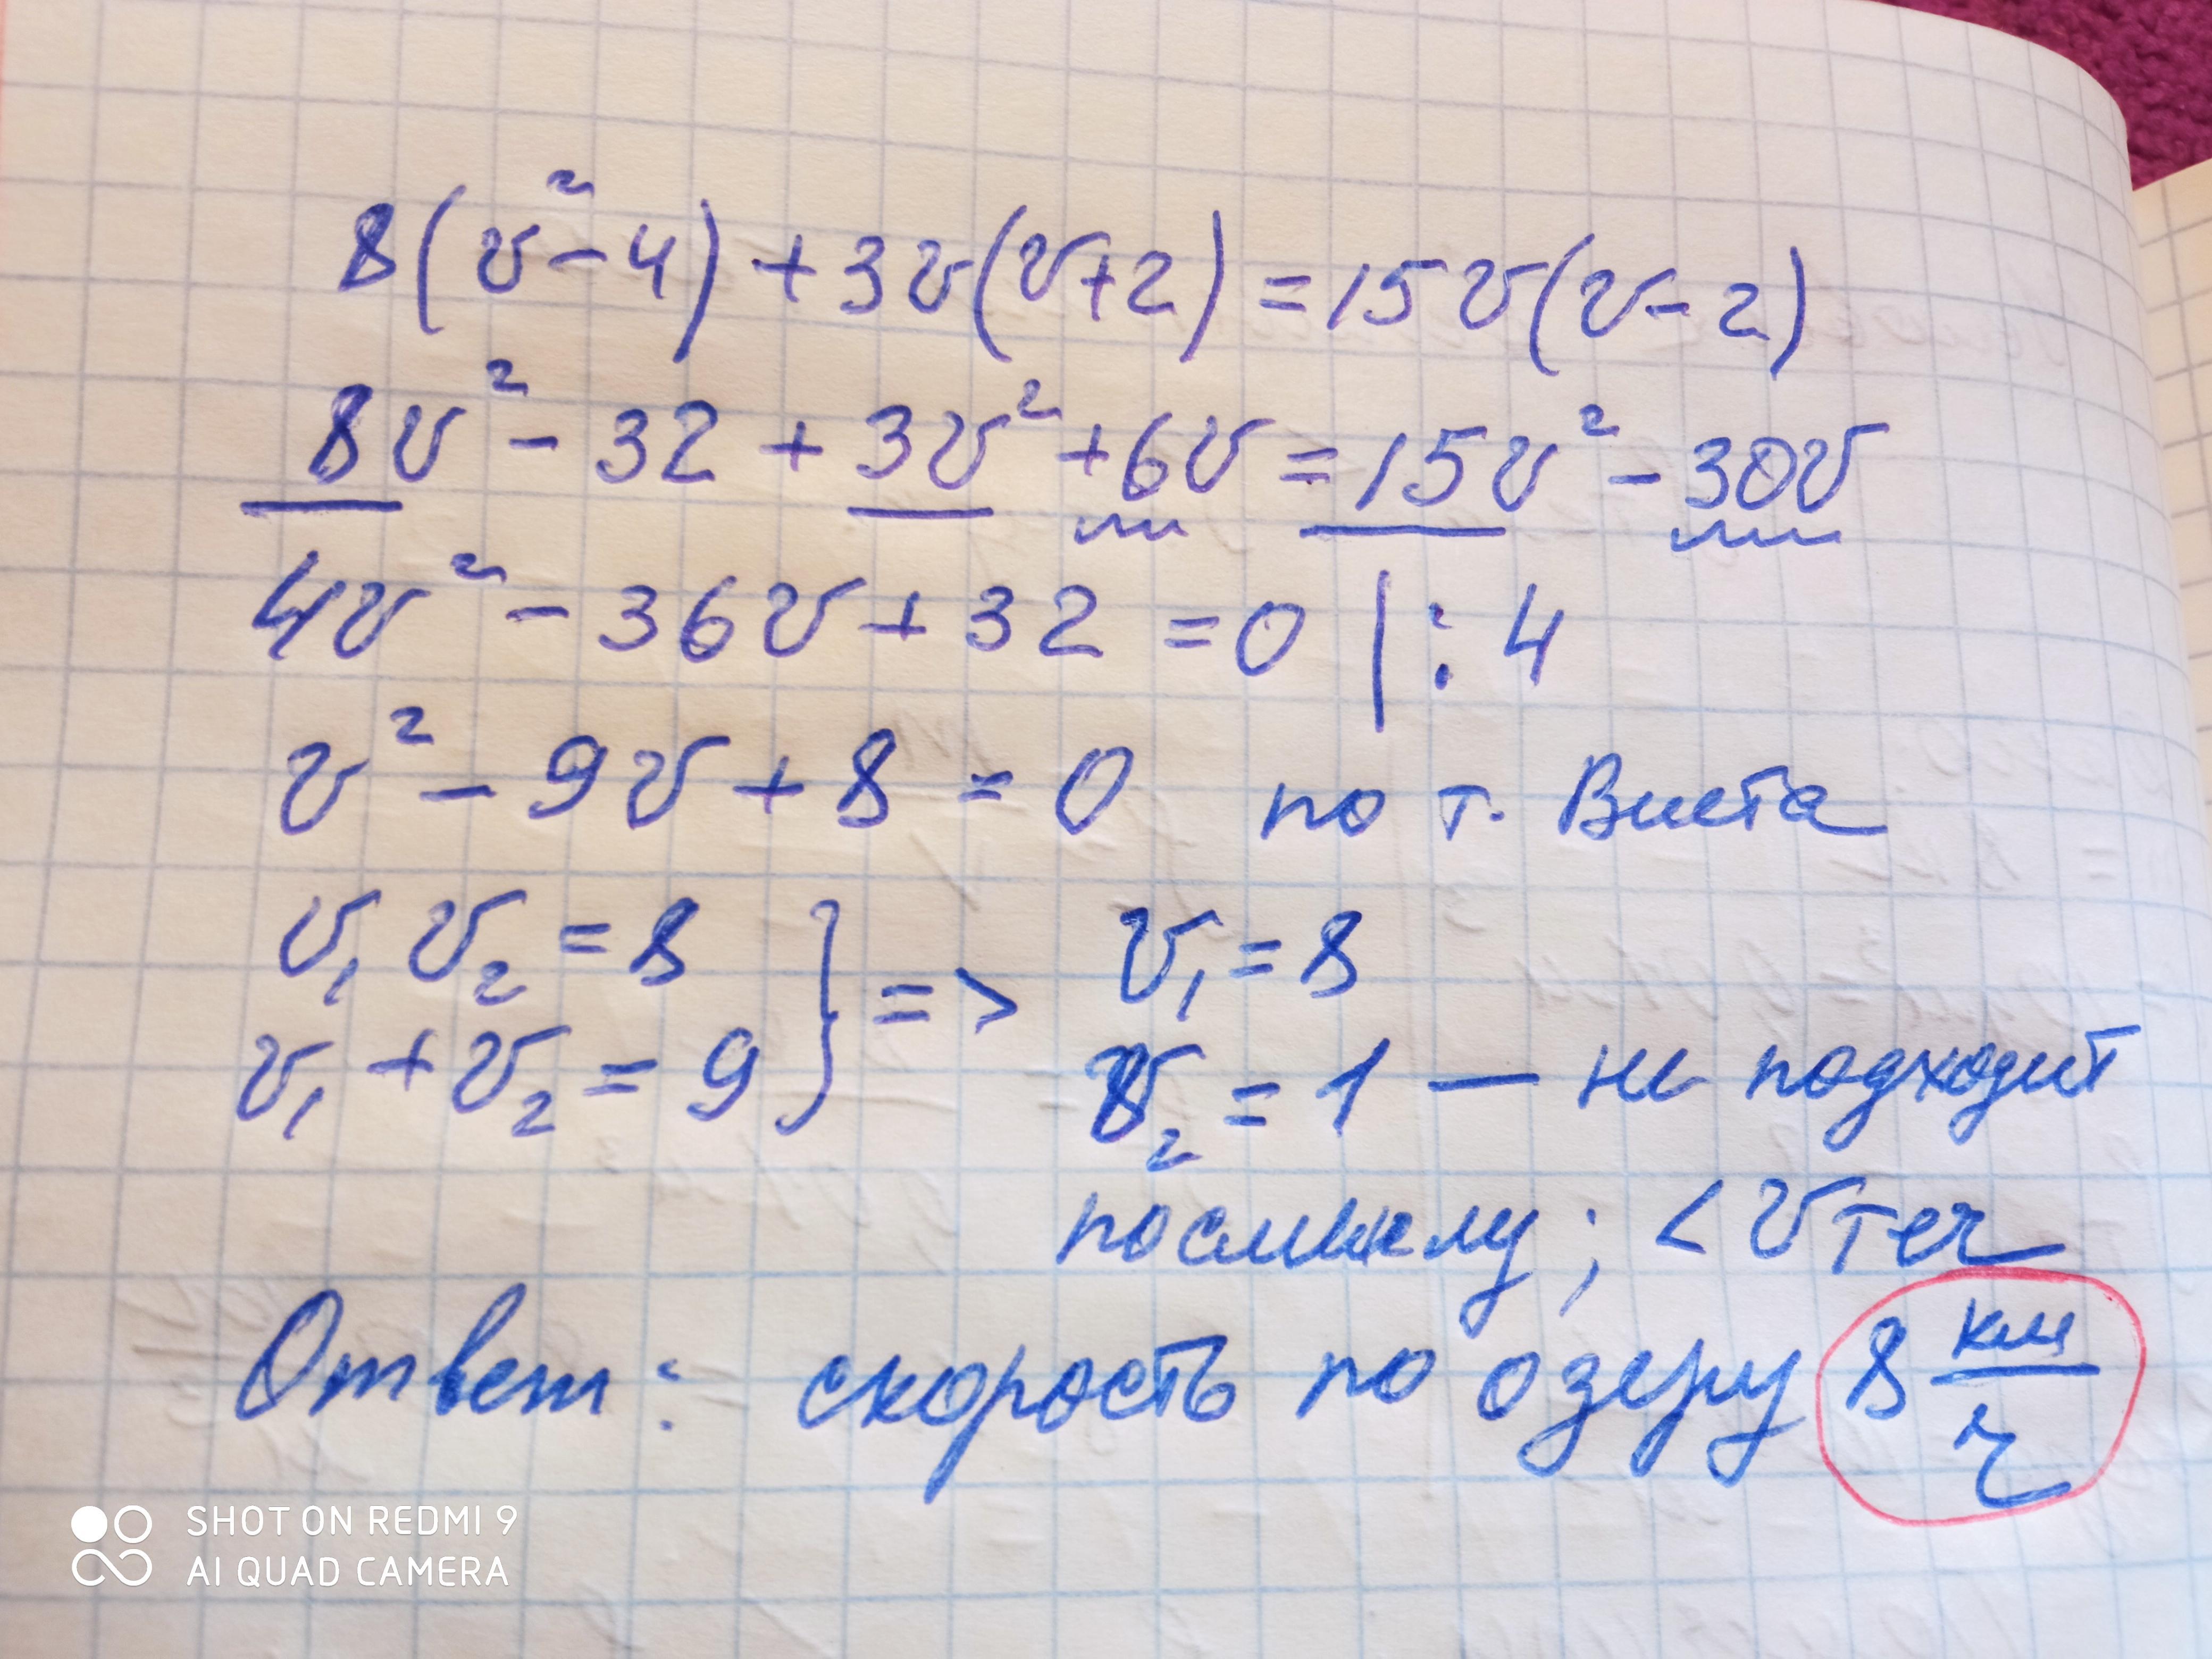 8(v²-4)+3v(v+2)=15v(v-2)
8v²-32+3v²+6v=15v²-30v
4v²-36v+32=0 |:4
v²-9v+8=0 по т. Виета
v₁v₂=8
v₁+v₂=9 } => v₁=8
v₂=1 — не подходит
по смыслу; <vтеч
Ответ: скорость по озеру 8 км/ч
SHOT ON REDMI 9
AI QUAD CAMERA